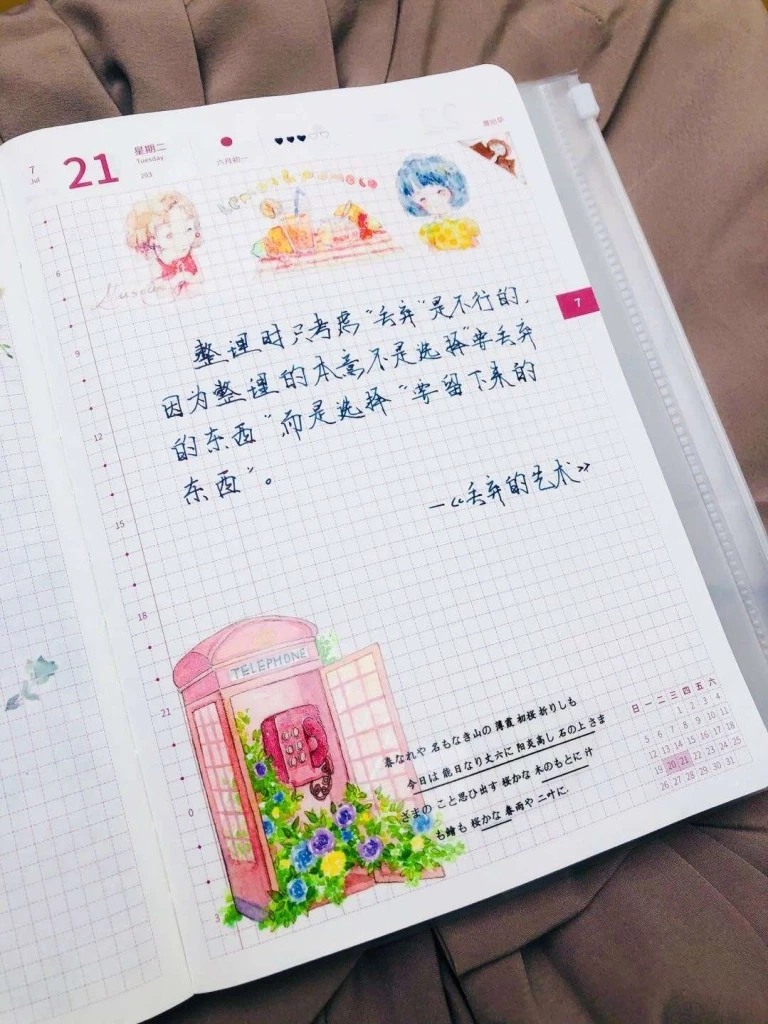 7
Jul
21
星期二
Tuesday
203
六月初一
6
9
12
15
18
21
0
3
7
整理时只考虑“丢弃”是不行的，
因为整理的本意不是选择“要丢弃
的东西”而是选择“要留下来的
东西”。
—《丢弃的艺术》
TELEPHONE
春なれや 名もなき山の 薄霞 初桜 折りしも
今日は 能日なり 丈六に 陽炎高し 石の上 さま
ざまの こと思ひ出す 桜かな 木のもとに 汁
も鱠も 桜かな 春雨や 二葉に
日 一 二 三 四 五 六
1 2 3 4
5 6 7 8 9 10 11
12 13 14 15 16 17 18
19 20 21 22 23 24 25
26 27 28 29 30 31